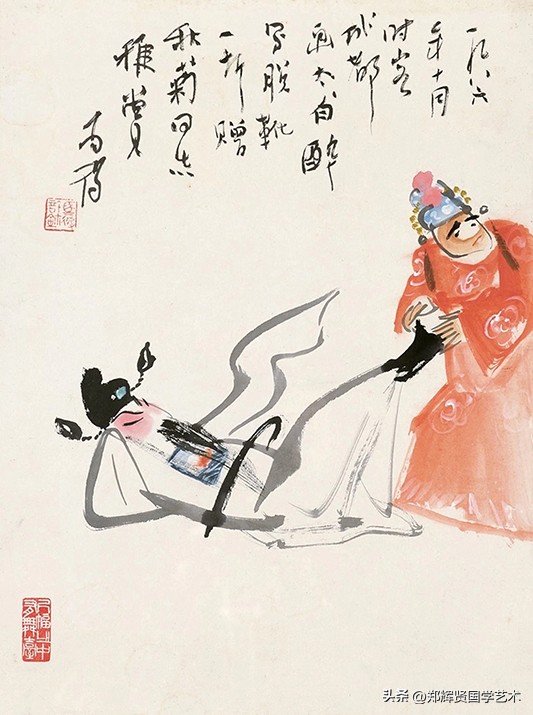 一九八六
年十月
时客
成都
画太白醉
写脱靴
一折赠
秋菊同志
雅赏
马得
尺幅之中
舞臺
头条 @郑辉贤国学艺术